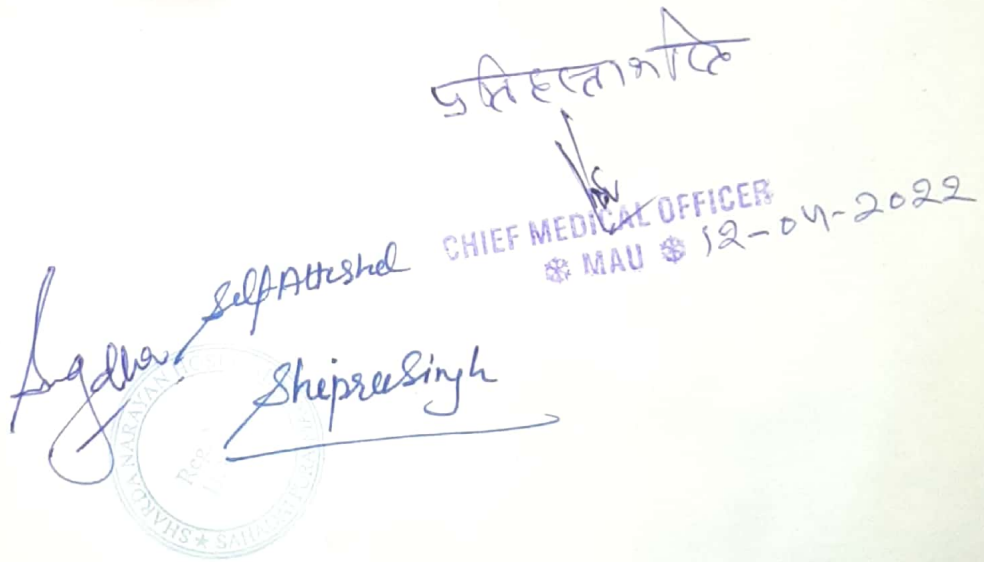 प्रतिहस्ताक्षरित
CHIEF MEDICAL OFFICER
MAU
12-04-2022
Self Attested
Shipree Singh
SHARDA NARAYAN